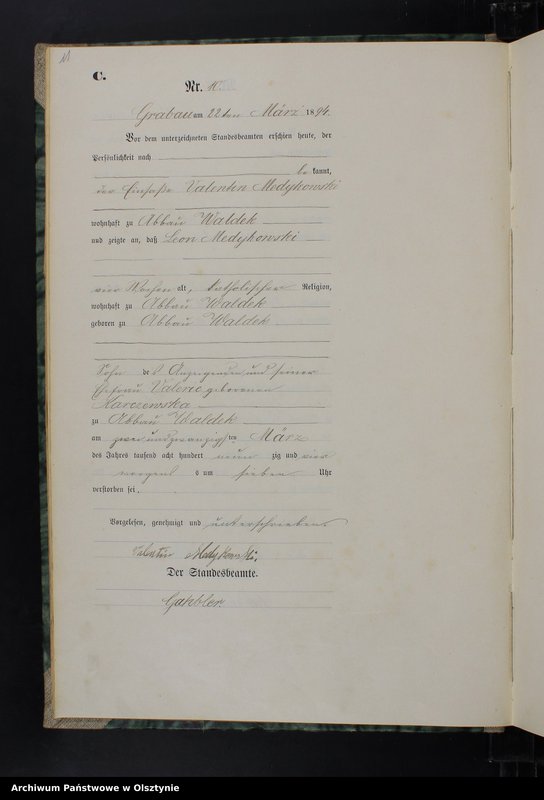 11
C.
Nr. 10.
Grabau am 22ten März 1894.
Vor dem unterzeichneten Standesbeamten erschien heute, der
Persönlichkeit nach
bekannt,
der Einsaße Valentin Medykowski
wohnhaft zu Abbau Waldek
und zeigte an, daß Leon Medykowski
vier Wochen alt, katholischer Religion,
wohnhaft zu Abbau Waldek
geboren zu Abbau Waldek
Sohn des Anzeigenden und seiner
Ehefrau Valerie geborenen
Karczewska
zu Abbau Waldek
am zwei und zwanzigsten März
des Jahres tausend acht hundert neun zig und vier
morgens um sieben Uhr
verstorben sei.
Vorgelesen, genehmigt und unterschrieben.
Valentin Medykowski.
Der Standesbeamte.
Archiwum Państwowe w Olsztynie